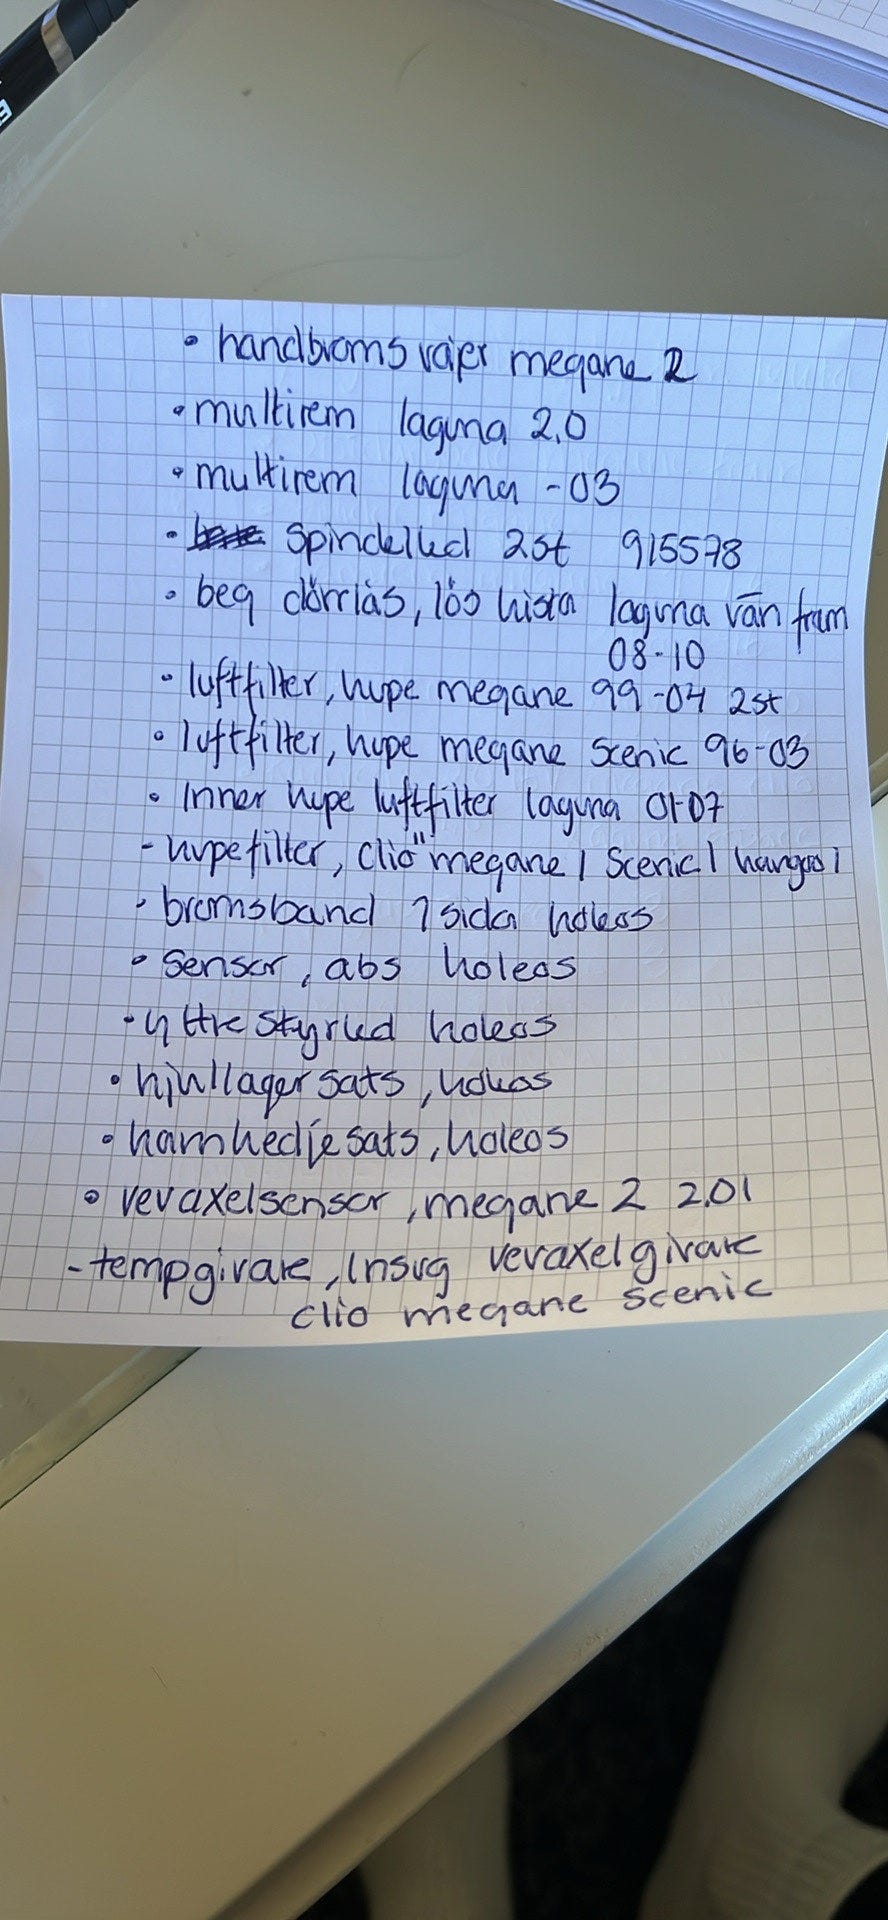 • handbroms vajer megane 2
• multirem laguna 2,0
• multirem laguna -03
• spindelled 2st 915578
• beg dörrlås, lös kista laguna vän fram
08-10
• luftfilter, kupe megane 99-04 2st
• luftfilter, kupe megane scenic 96-03
• Inner kupe luftfilter laguna 01-07
- kupefilter, clio" megane / Scenic /
• bromsband 1 sida koleos
• sensor, abs koleos
• yttre styrled koleos
• hjullager sats, koleos
• kamkedje sats, koleos
• vevaxelsensor, megane 2 2,0l
- tempgivare, Insug vevaxelgivare
clio megane scenic